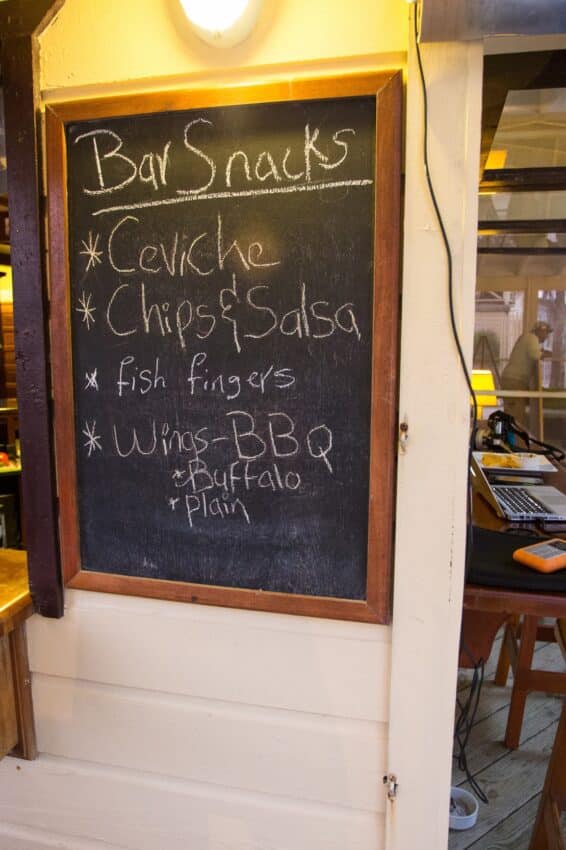 Bar Snacks
* Ceviche
* Chips & Salsa
* fish fingers
* Wings-BBQ
* Buffalo
* plain